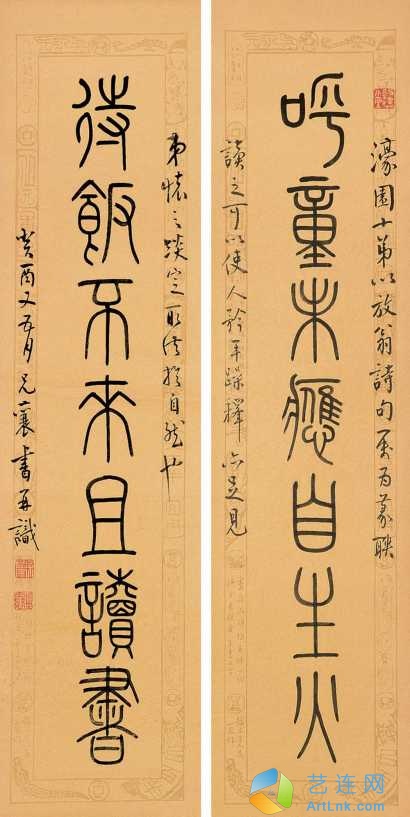 濠園十弟以放翁詩句屬为篆聯
呼童未應自生火
讀之可以使人矜平躁釋亦足見
弟懷之淡定取法於自然也
待飯不來且讀書
癸酉又五月兄襄書并識
艺连网
ArtLnk.com